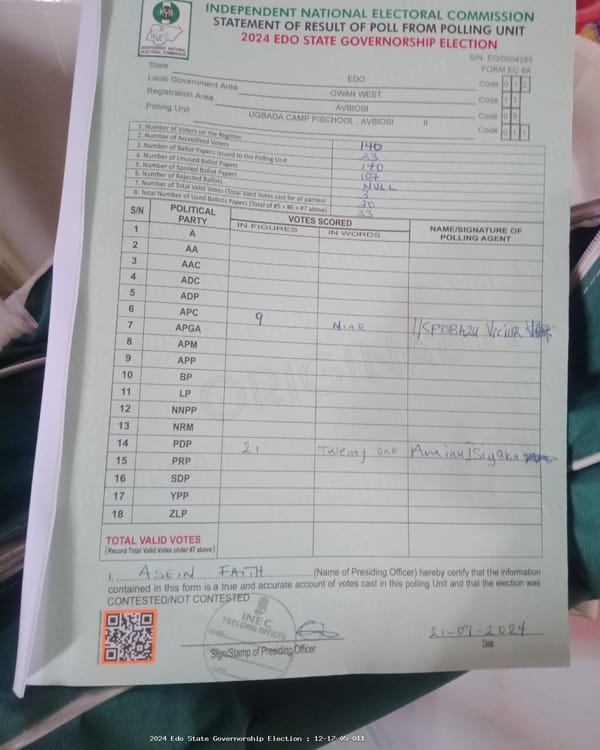 INDEPENDENT NATIONAL ELECTORAL COMMISSION
STATEMENT OF RESULT OF POLL FROM POLLING UNIT
2024 EDO STATE GOVERNORSHIP ELECTION
INEC
INDEPENDENT NATIONAL ELECTORAL COMMISSION
S/N: EG/0004285
FORM EC 8A
State EDO Code 0 1 2
Local Government Area OWAN WEST Code 1 7
Registration Area AVBIOSI Code 0 5
Polling Unit UGBADA CAMP P/SCHOOL . AVBIOSI II Code 0 1 1
1. Number of Voters on the Register 140
2. Number of Accredited Voters 33
3. Number of Ballot Papers Issued to the Polling Unit 140
4. Number of Unused Ballot Papers 107
5. Number of Spoiled Ballot Papers NULL
6. Number of Rejected Ballots 3
7. Number of Total Valid Votes (Total Valid Votes cast for all parties) 30
8. Total Number of Used Ballots Papers (Total of #5 + #6 + #7 above) 33
S/N POLITICAL PARTY VOTES SCORED NAME/SIGNATURE OF POLLING AGENT
IN FIGURES IN WORDS
1 A
2 AA
3 AAC
4 ADC
5 ADP
6 APC 9 Nine Victor
7 APGA
8 APM
9 APP
10 BP
11 LP
12 NNPP
13 NRM
14 PDP 21 Twenty one Aminu Isiyaka
15 PRP
16 SDP
17 YPP
18 ZLP
ORIGINAL
TOTAL VALID VOTES
(Record Total Valid Votes under #7 above)
I, ASEIN FAITH (Name of Presiding Officer) hereby certify that the information
contained in this form is a true and accurate account of votes cast in this polling Unit and that the election was
CONTESTED/NOT CONTESTED
INEC
PRESIDING OFFICER
21-09-2024
Sign/Stamp of Presiding Officer Date
2024 Edo State Governorship Election : 12-17-05-011